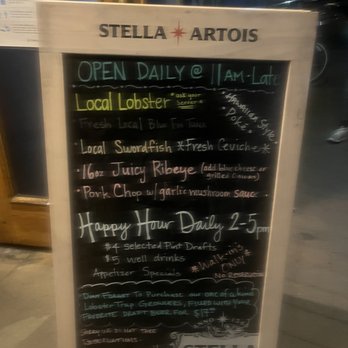 STELLA ★ ARTOIS
OPEN DAILY @ 11AM-Late
Local Lobster *ask your server*
*Hawaiian Style Poke*
Fresh Local Blue Fin Tuna
*Local Swordfish *Fresh Ceviche*
*16oz Juicy Ribeye (add blue cheese or
*Pork Chop w/garlic mushroom sauce
Happy Hour Daily 2-5pm
$4 selected Pint Drafts
$5 well drinks
Appetizer Specials
*WALK-INS ONLY*
NO RESERVATIONS
DON'T FORGET TO PURCHASE OUR ONE OF A KIND
LOBSTER TRAP GROWLERS, FILLED WITH YOUR
FAVORITE DRAFT BEER FOR
SORRY WE DO NOT TAKE
RESERVATIONS
STELLA